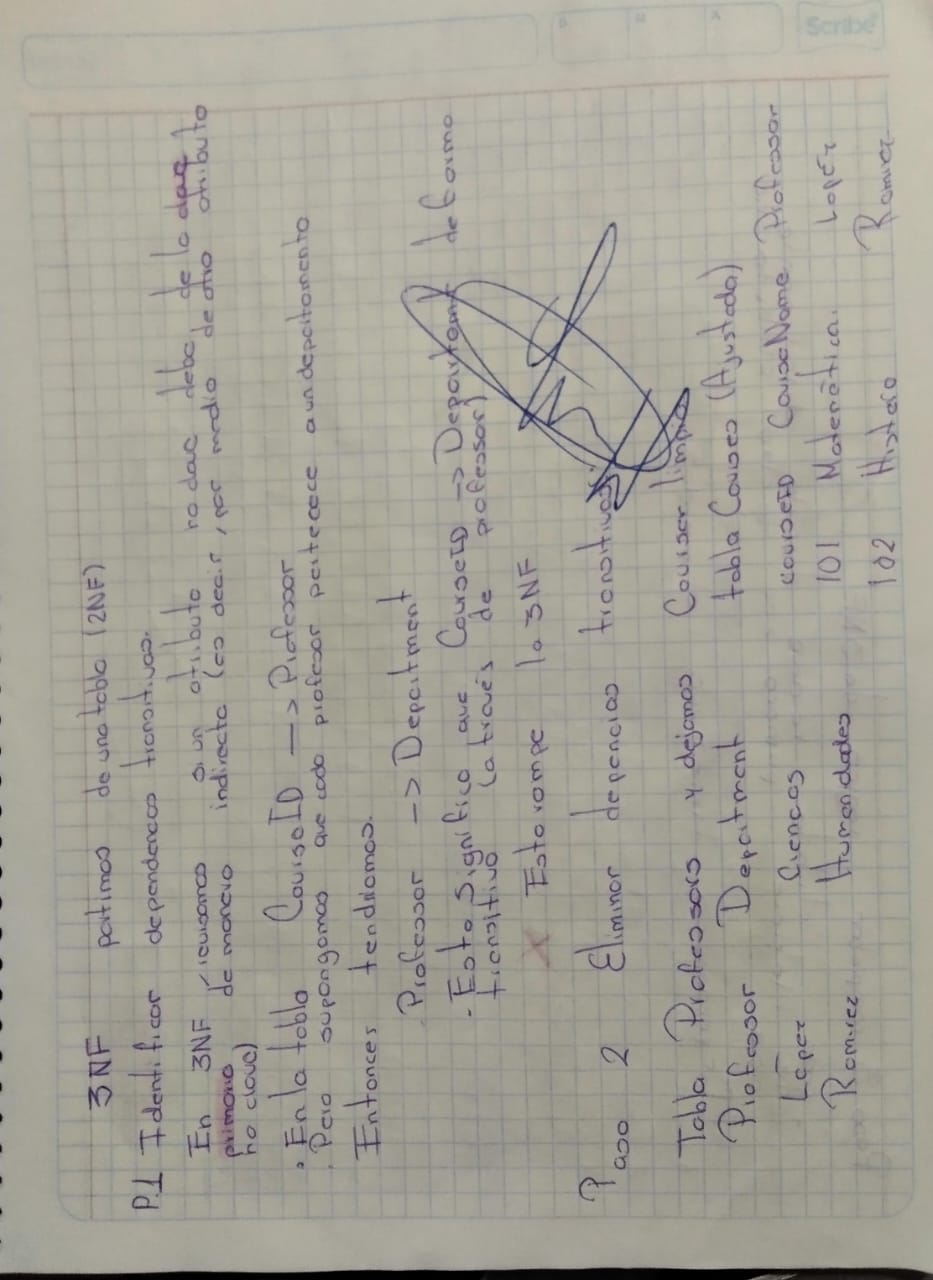 Scribe
3NF partimos de una tabla (2NF)
P.1 Identificar dependencas transitivas.
En 3NF revisamos si un atributo no clac debe de la clave
primaria de manera indirecta (es decir, por medio de otro atributo
no clave)
· En la tabla CourseID —> Professor
· Pero supongamos que cada profesor pertecece a un departamento
Entonces tendiamos.
· Professor —> Depertment
· Esto Significa que CourseID —> Department de forma
transitiva (a través de professor)
X Esto rompe la 3NF
Paso 2 Eliminar depencias transitivas.
Tabla Professors y dejamos Courser limpia
Professor Depertment tabla Courses (Ajustada)
López Ciencas courseID CourseName Professor
Ramirez Humanidades 101 Matemática. Lopéz
102 Histora Ramirez